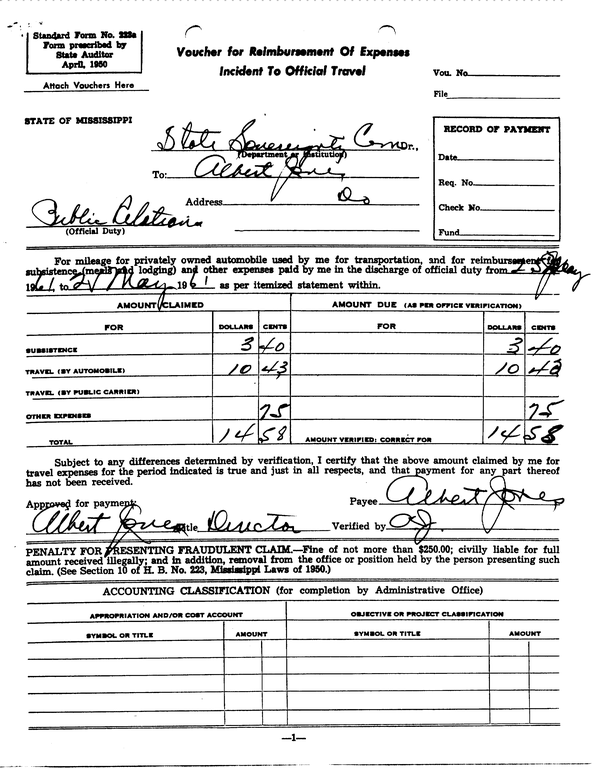 Standard Form No. 222a
Form prescribed by
State Auditor
April, 1950
Attach Vouchers Here
Voucher for Reimbursement Of Expenses
Incident To Official Travel
Vou. No.
File
STATE OF MISSISSIPPI
State Sovereignty Comm or.,
(Department or Institution)
To: Albert Jones
Address Do
Public Relations
(Official Duty)
RECORD OF PAYMENT
Date
Req. No.
Check No.
Fund
For mileage for privately owned automobile used by me for transportation, and for reimbursement for
subsistence (meals and lodging) and other expenses paid by me in the discharge of official duty from May
1961, to May 1961 as per itemized statement within.
AMOUNT CLAIMED AMOUNT DUE (AS PER OFFICE VERIFICATION)
FOR DOLLARS CENTS FOR DOLLARS CENTS
SUBSISTENCE 3 40 3 40
TRAVEL (BY AUTOMOBILE) 10 43 10 43
TRAVEL (BY PUBLIC CARRIER)
OTHER EXPENSES 75 75
TOTAL 14 58 AMOUNT VERIFIED: CORRECT FOR 14 58
Subject to any differences determined by verification, I certify that the above amount claimed by me for
travel expenses for the period indicated is true and just in all respects, and that payment for any part thereof
has not been received.
Payee Albert Jones
Approved for payment:
Albert Jones Title Director Verified by AJ
PENALTY FOR PRESENTING FRAUDULENT CLAIM.—Fine of not more than $250.00; civilly liable for full
amount received illegally; and in addition, removal from the office or position held by the person presenting such
claim. (See Section 10 of H. B. No. 223, Mississippi Laws of 1950.)
ACCOUNTING CLASSIFICATION (for completion by Administrative Office)
APPROPRIATION AND/OR COST ACCOUNT OBJECTIVE OR PROJECT CLASSIFICATION
SYMBOL OR TITLE AMOUNT SYMBOL OR TITLE AMOUNT
—1—